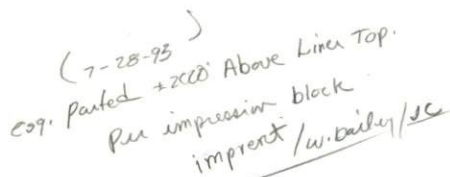 (7-28-93)
csg. Parted ±2000' Above Liner Top.
Per impression block
imprent /W. Bailey/SC